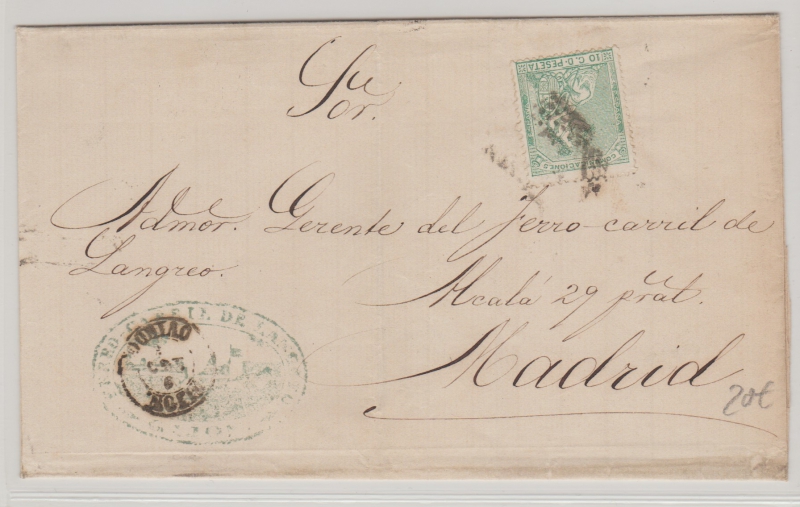 Sor.
10 C. D. PESETA
COMUNICACIONES
Admor. Gerente del ferro-carril de
Langreo.
Alcalá 29 pral.
Madrid
20€
FERRO-CARRIL DE LANGREO
OVIEDO
GIJON